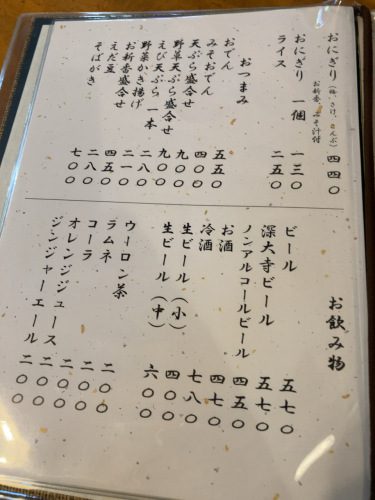 おにぎり（梅、さけ、こんぶ）　四四〇
お新香、みそ汁付
おにぎり　一個　一三〇
ライス　二五〇
おつまみ
おでん　五五〇
みそおでん　四〇〇
天ぷら盛合せ　九〇〇
野草天ぷら盛合せ　九〇〇
えび天ぷら一本　二八〇
野菜かき揚げ　二一〇
お新香盛合せ　四五〇
えだ豆　二八〇
そばがき　七〇〇
お飲み物
ビール　五七〇
深大寺ビール　五七〇
ノンアルコールビール　四五〇
お酒　四七〇
冷酒　七八〇
生ビール（小）　四〇〇
生ビール（中）　六〇〇
ウーロン茶　二〇〇
ラムネ　二〇〇
コーラ　二〇〇
オレンジジュース　二〇〇
ジンジャーエール　二〇〇